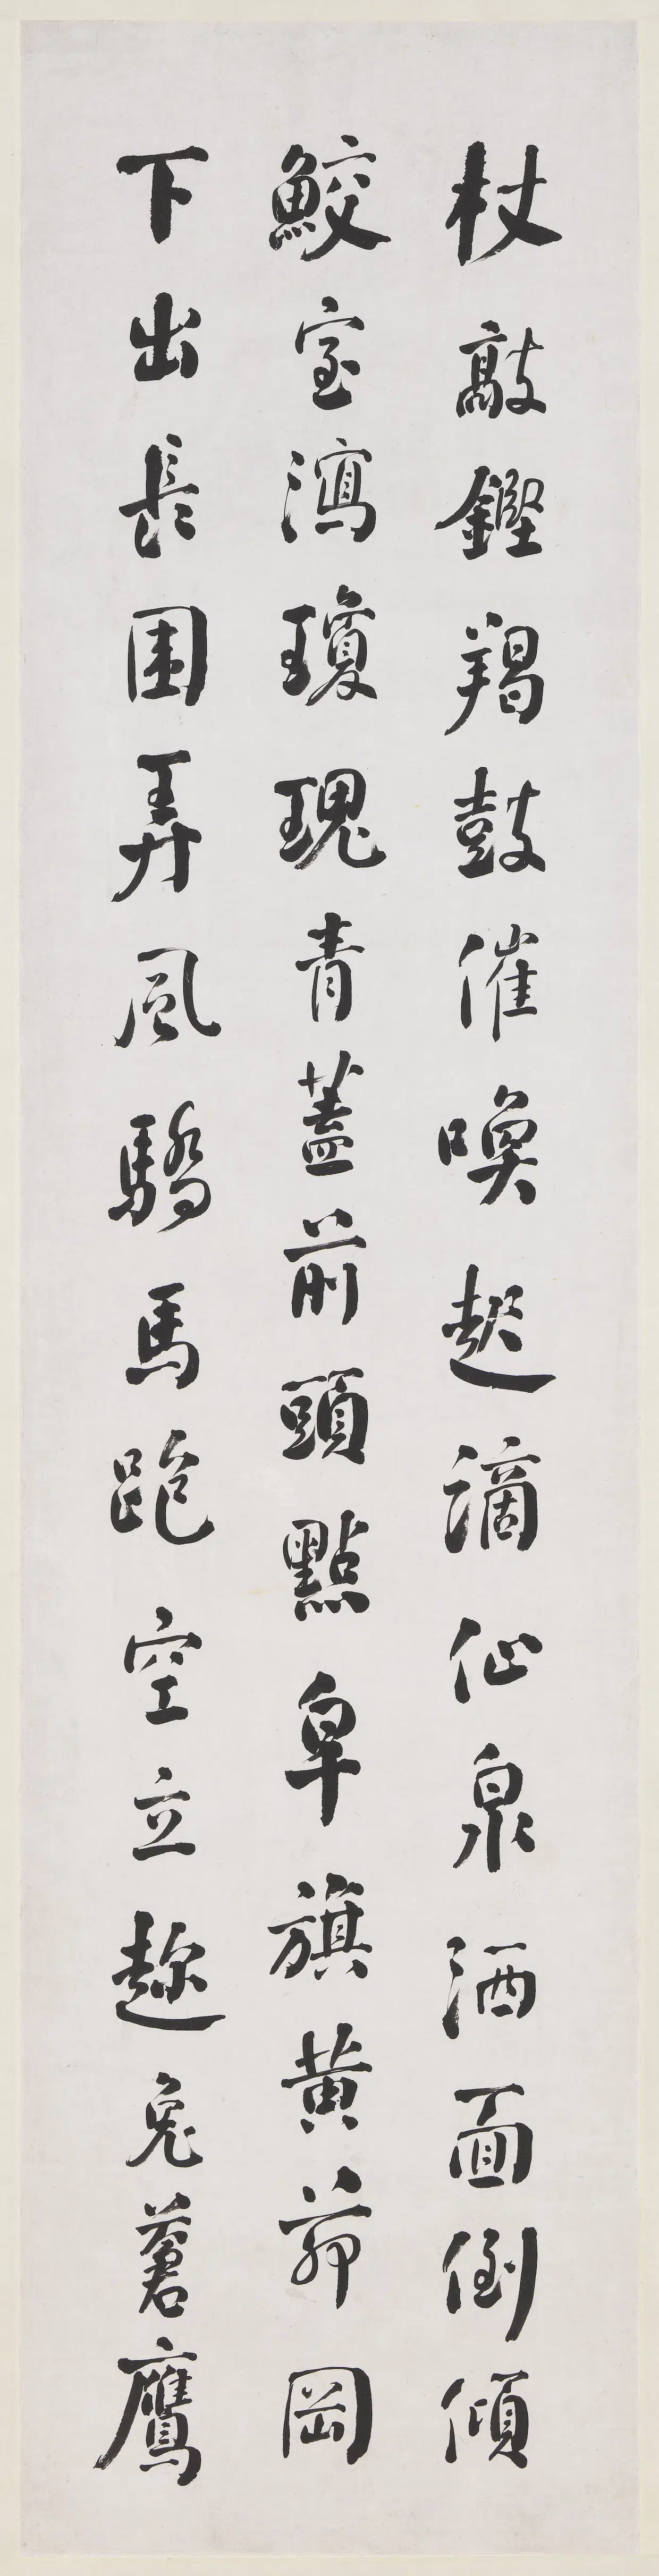 杖敲鏗羯鼓催喚起謫仙泉洒面倒傾
鮫室瀉瓊瑰青蓋前頭點皁旗黃茆岡
下出長圍弄風驕馬跑空立趁兔蒼鷹